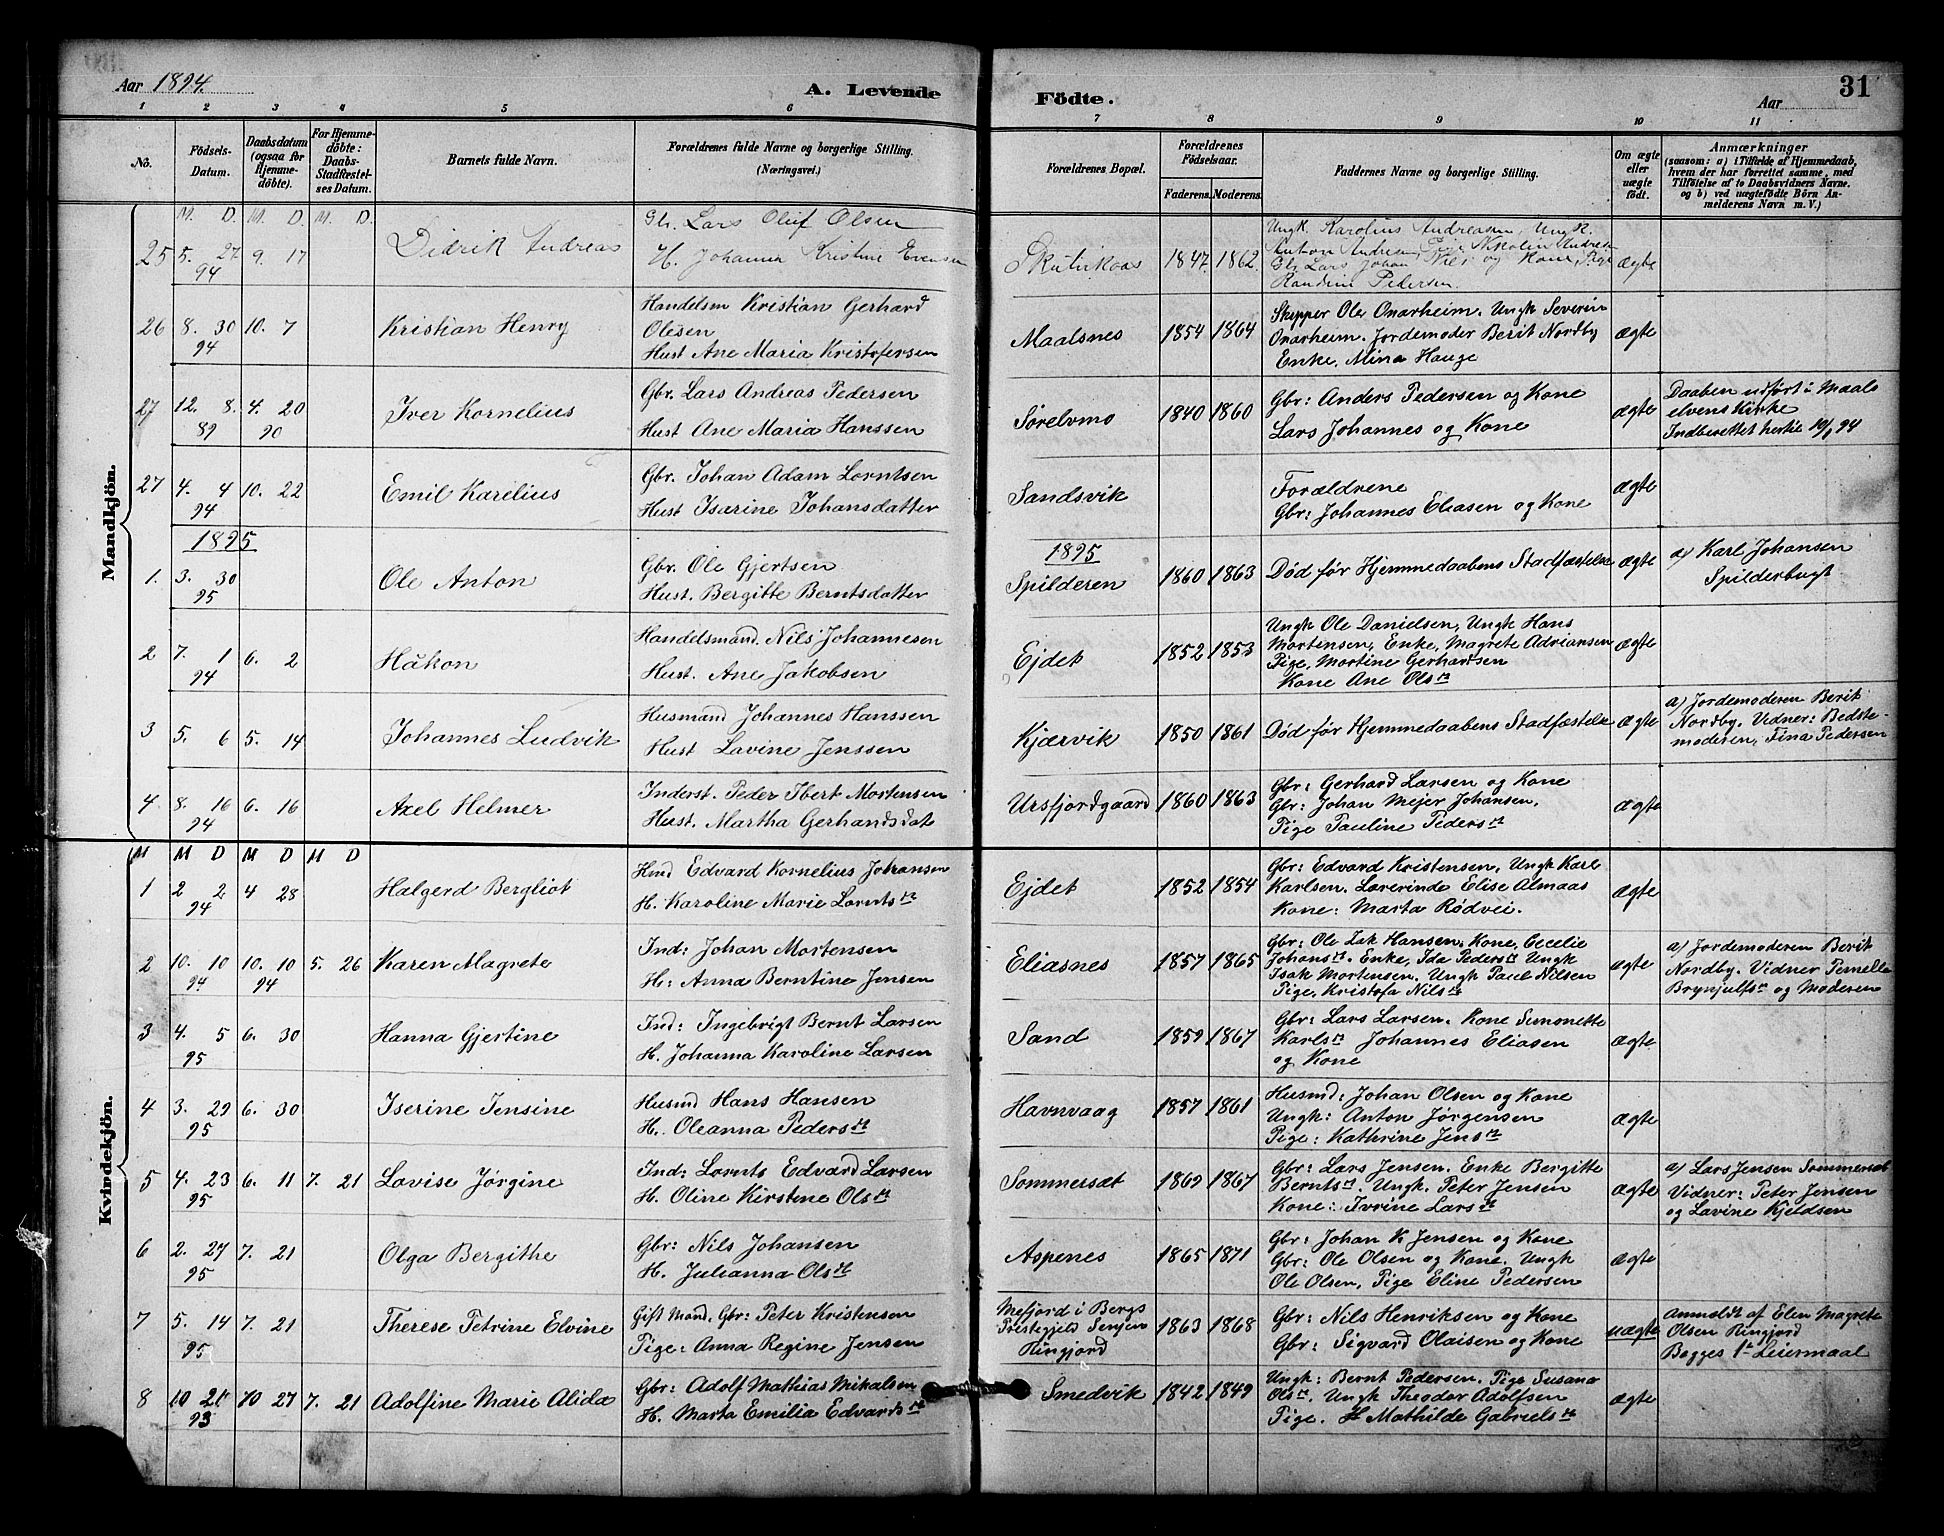 Aar 1894.
A. Levende Födte.
Aar
31
1 2 3 4 5 6 7 8 9 10 11
No.
Födsels-
Datum.
Daabsdatum
(ogsaa for
Hjemme-
döbte).
For Hjemme-
döbte:
Daabs-
Stadfæstel-
ses Datum.
Barnets fulde Navn.
Forældrenes fulde Navne og borgerlige Stilling.
(Næringsvei.)
Forældrenes Bopæl.
Forældrenes
Födselsaar.
Faderens. Moderens.
Faddernes Navne og borgerlige Stilling.
Om ægte
eller
uægte
födt.
Anmærkninger
(saasom: a) i Tilfælde af Hjemmedaab,
hvem der har forrettet samme, med
Tilföielse af to Daabsvidners Navne.
og b) ved uægtefödte Börn An-
melderens Navn m. V.)
Mandkjön.
M. D. M. D. M. D.
25 5. 27 94 9. 17
Didrik Andreas
Gb. Lars Oluf Olsen
H. Johanna Kristine Evensen
1847. 1862.
Ungk. Karolius Andreasen, Ungk.
Anton Andreas, Nikolin Andreas
Gb. Lars Johan og Kone, Pige
Pedersen.
ægte
26 8. 30 94 10. 7
Kristian Henry
Handelsm Kristian Gerhard
Olesen
Hust Ane Maria Kristofersen
Maalsnes
1854 1864
Skipper Ole Onarheim. Ungk Severin
Onarheim. Jordemoder Berit Nordby
Enke, Mina Hauge
ægte
27 12. 8. 89 4. 20 90
Iver Kornelius
Gbr. Lars Andreas Pedersen
Hust Ane Maria Hanssen
Sørelvmo
1840 1860
Gbr: Anders Pedersen og Kone
Lars Johannes og Kone
ægte
Daaben udført i Maals
elvens Kirke
Indberettet hertil 10/1 94
27 4. 4 94 10. 22
Emil Karelius
Gbr. Johan Adam Lorntsen
Hust Iserine Johansdatter
Sandsvik
Forældrene
Gbr: Johannes Eliasen og Kone
ægte
1895
1895
1. 3. 30 95
Ole Anton
Gbr. Ole Gjertsen
Hust. Bergitte Berntsdatter
Spilderen
1860 1863
Død før Hjemmedaabens Stadfæstelse
ægte
a) Karl Johansen
Spilderbugt
2 7. 1 94 6. 2
Håkon
Handelsmand. Nils Johannesen
Hust. Ane Jakobsen
Ejdet
1852 1853
Ungk Ole Danielsen, Ungk Hans
Mortensen, Enke, Magrete Adriansen
Pige, Mortine Gerhardsen
Kone Ane Ols dt
ægte
3 5. 6 5. 14
Johannes Ludvik
Husmand Johannes Hanssen
Hust Lavine Jenssen
Kjærvik
1850 1861
Død før Hjemmedaabens Stadfæstelse
ægte
a) Jordemoderen Berit
Nordby. Vidner: Bedste-
moderen, Fina Pedersen
4 8. 16 94 6. 16
Axel Helmer
Inderst. Peder Ibert Mortensen
Hust. Martha Gerhardsdat
Ursfjordgaard
1860 1863
Gbr: Gerhard Larsen og Kone
Gbr: Johan Mejer Johansen,
Pige Pauline Peders dt
ægte
Kvindekjön.
M M D M D M D
1 2 2 94 4 28
Halgerd Bergliot
Hmd Edvard Kornelius Johansen
H. Karoline Marie Lornts dt
Ejdet
1852 1854
Gbr: Edvard Kristensen, Ungk Karl
Karlsen. Lærerinde Elise Almaas
Kone: Marta Rødvei.
ægte
2 10. 10 94 10. 10 94 5. 26
Karen Magrete
Ind: Johan Mortensen
H: Anna Berntine Jensen
Eliasnes
1857 1865
Gbr: Ole Zak Hansen, Kone, Cecelie
Johans dt. Enke, Ida Peders dt Ungk
Isak Mortensen. Ungk Paul Nilsen
Pige, Kristofa Nils dt
ægte
a) Jordemoderen Berit
Nordby. Vidner Pernelle
Brynjulfs dt og Moderen
3 4. 5 95 6. 30
Hanna Gjertine
Ind: Ingebrigt Bernt Larsen
H. Johanna Karoline Larsen
Sand
1859 1867
Gbr: Lars Larsen. Kone Simonette
Karls dt Johannes Eliasen
og Kone
ægte
4 3. 29 95 6. 30
Iserine Jensine
Husmd Hans Hansen
H. Oleanna Peders dt
Havnvaag
1857 1861
Husmd: Johan Olsen og Kone
Ungk: Anton Jørgensen
Pige: Kathrine Jens dt
ægte
5 4. 23 95 6. 11 7. 21
Lovise Jørgine
Ind: Lornts Edvard Larsen
H. Oline Kirstene Ols dt
Sommersæt
1869 1867
Gbr: Lars Jensen. Enke Bergitte
Bernts dt. Ungk. Peter Jensen
Kone: Ivrine Lars dt
ægte
a) Lars Jensen Sommersæt
Vidner: Peter Jensen
og Lavine Kjeldsen
6 2. 27 95 7. 21
Olga Bergithe
Gbr: Nils Johansen
H. Julianna Ols dt
Aspenes
1865 1871
Gbr: Johan K Jensen og Kone
Gbr: Ole Olsen og Kone. Ungk
Ole Olsen, Pige Eline Pedersen
ægte
7 5. 14 95 7. 21
Therese Petrine Elvine
Gift Mand. Gbr: Peter Kristensen
Pige: Anna Regine Jensen
Mefjord i Bergs
Prestegjeld Senjen
Ringjord
1863 1868
Gbr: Nils Henriksen og Kone
Gbr: Sigvard Olaisen og Kone
uægte
Anmeldt af Elen Magrete
Olsen Ringjord
Begges 1ste Leiermaal
8 10 21 93 10 27 7. 21
Adolfine Marie Alida
Gbr: Adolf Mathias Mikalsen
H. Marta Emilia Edvards dt
Smedvik
1842 1849
Ungk: Bernt Pedersen. Pige Susana
Ols dt. Ungk Theodor Adolfsen
Pige. H Mathilde Gabriels dt
ægte